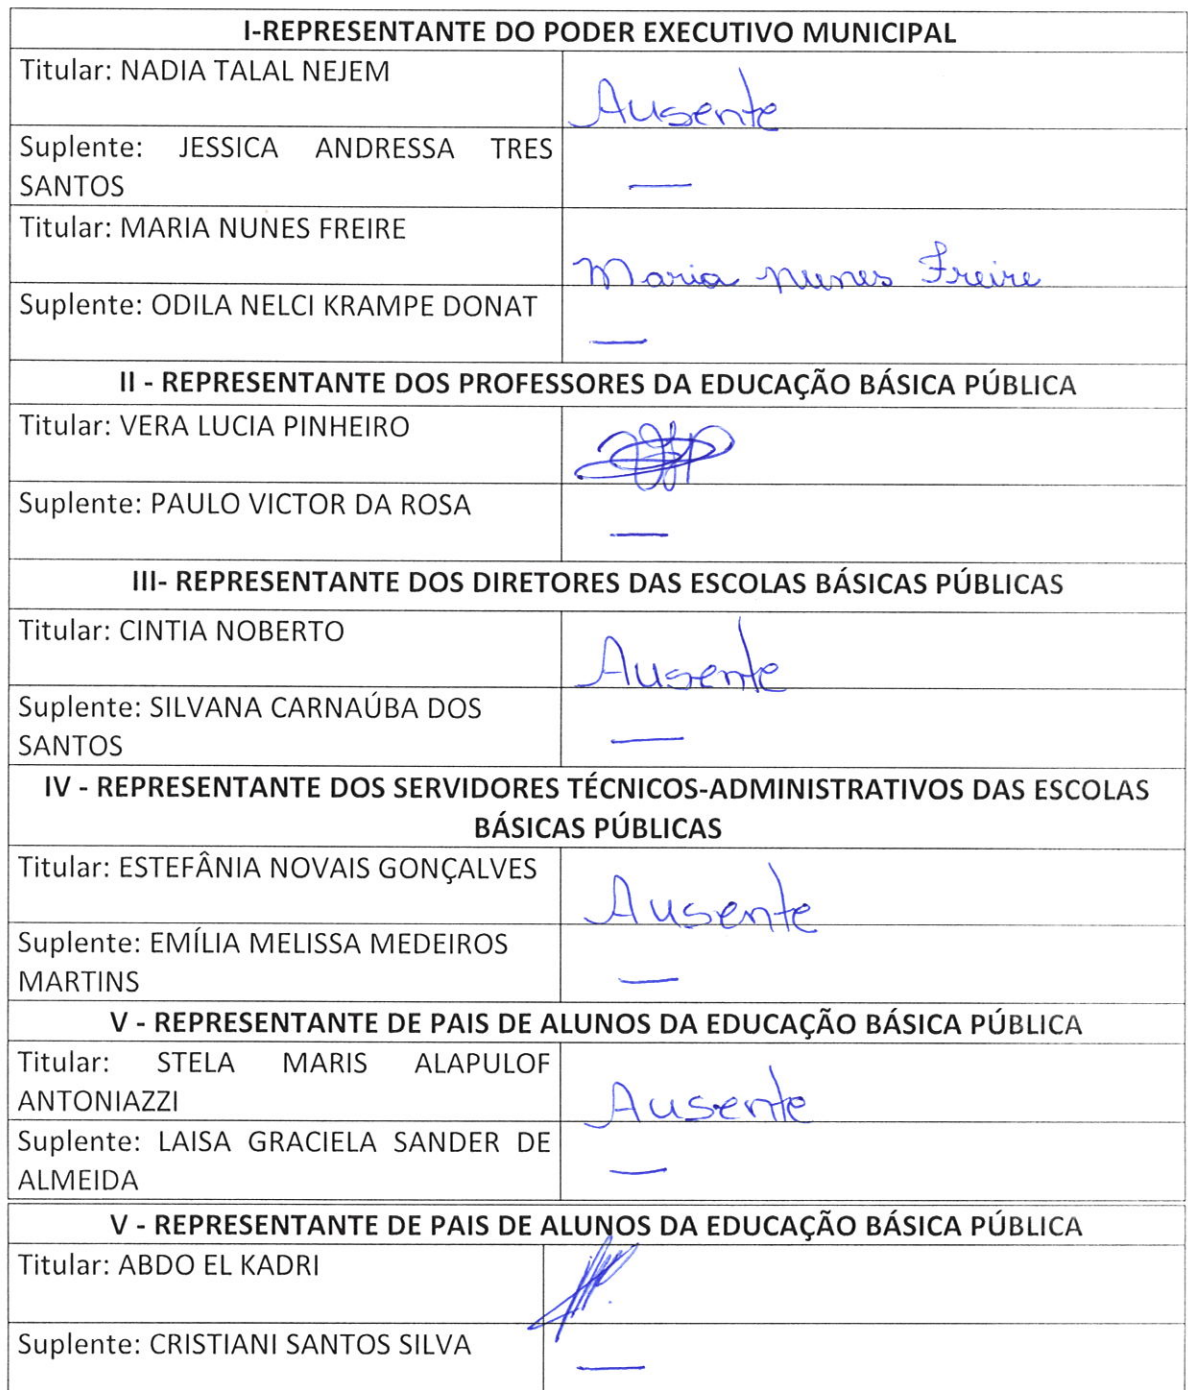 I-REPRESENTANTE DO PODER EXECUTIVO MUNICIPAL
Titular: NADIA TALAL NEJEM
Ausente
Suplente: JESSICA ANDRESSA TRES
SANTOS
—
Titular: MARIA NUNES FREIRE
Maria nunes Freire
Suplente: ODILA NELCI KRAMPE DONAT
—
II - REPRESENTANTE DOS PROFESSORES DA EDUCAÇÃO BÁSICA PÚBLICA
Titular: VERA LUCIA PINHEIRO
Suplente: PAULO VICTOR DA ROSA
—
III- REPRESENTANTE DOS DIRETORES DAS ESCOLAS BÁSICAS PÚBLICAS
Titular: CINTIA NOBERTO
Ausente
Suplente: SILVANA CARNAÚBA DOS
SANTOS
—
IV - REPRESENTANTE DOS SERVIDORES TÉCNICOS-ADMINISTRATIVOS DAS ESCOLAS
BÁSICAS PÚBLICAS
Titular: ESTEFÂNIA NOVAIS GONÇALVES
Ausente
Suplente: EMÍLIA MELISSA MEDEIROS
MARTINS
—
V - REPRESENTANTE DE PAIS DE ALUNOS DA EDUCAÇÃO BÁSICA PÚBLICA
Titular: STELA MARIS ALAPULOF
ANTONIAZZI
Ausente
Suplente: LAISA GRACIELA SANDER DE
ALMEIDA
—
V - REPRESENTANTE DE PAIS DE ALUNOS DA EDUCAÇÃO BÁSICA PÚBLICA
Titular: ABDO EL KADRI
Suplente: CRISTIANI SANTOS SILVA
—